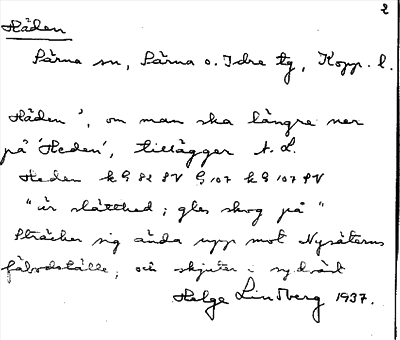 2
Häden
Särna sn, Särna o. Idre tg, Kopp. l.
Häden', om man ska längre ner
på 'Heden', tillägger A. L.
Heden k G 82 SV G 107 k G 107 SV
"är slätthed; gles skog på"
Sträcker sig ända upp mot Nysäterns
fäbodställe, och skjuter i sydväst
Helge Lindberg 1937.